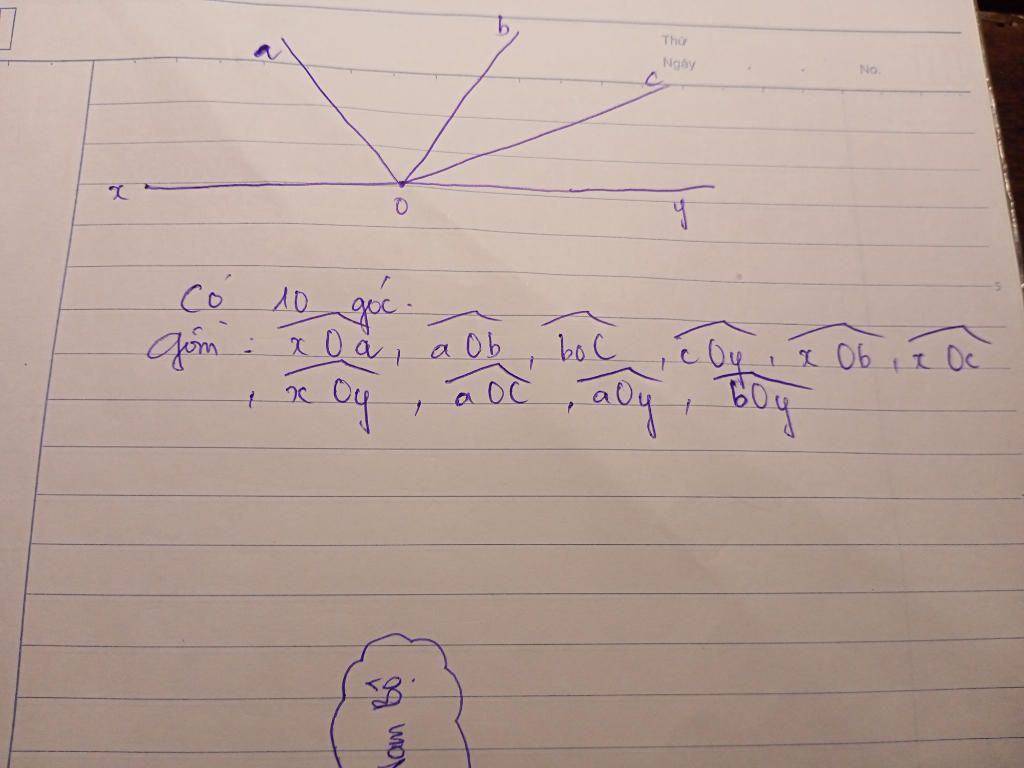 a
b
c
Thứ
Ngày . . No.
x
O
y
5
Có 10 góc.
gồm : xOa, aOb, boC, cOy, xOb, xOc
, xOy, aOC, aOy, bOy